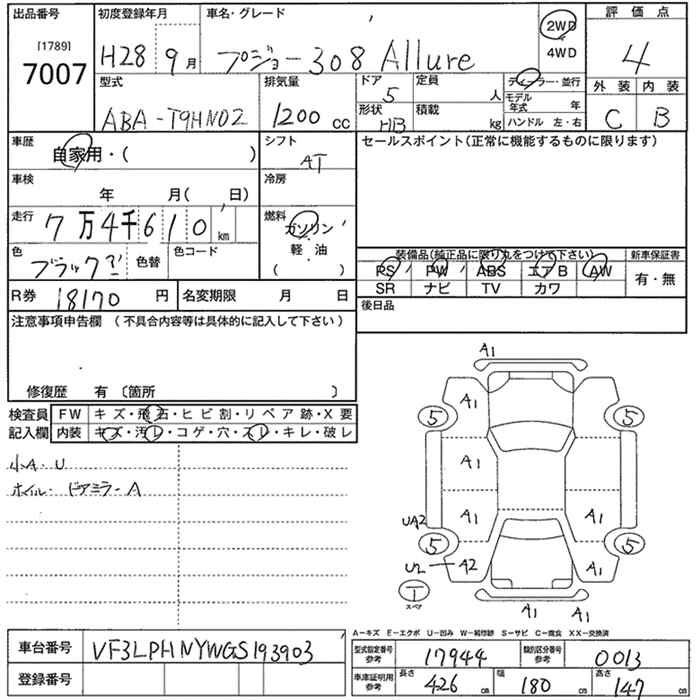 出品番号 初度登録年月 車名・グレード 2WD 評価点
[1789] 7007 H28 9月 プジョー308 Allure 4WD 4
型式 排気量 ドア 定員 ディーラー・並行 外装 内装
ABA-T9HN02 1200 cc 5 人 モデル年式 年 C B
形状 積載 HB kg ハンドル 左・右
車歴 シフト セールスポイント(正常に機能するものに限ります)
自家用・( ) AT
車検 冷房
年 月( 日)
走行 7万4千610 km 燃料 ガソリン
軽・油
( )
色 色替 色コード 装備品(純正品に限り丸をつけて下さい) 新車保証書
ブラック PS PW ABS エアB AW 有・無
SR ナビ TV カワ
R券 18170 円 名変期限 月 日 後日品
注意事項申告欄 (不具合内容等は具体的に記入して下さい)
修復歴 有 〔箇所 〕
検査員 FW キズ・飛石・ヒビ割・リペア跡・X要
記入欄 内装 キズ・汚レ・コゲ・穴・スレ・キレ・破レ
小A・U
ホイル・ドアミラーA
A1
A1
5 5
A1
A1 A1 A1
UA2
5 5
U2 A2 A1
1
スペア
A1 A1
A-キズ E-エクボ U-凹み W-補修跡 S-サビ C-腐食 XX-交換済
車台番号 VF3LPHNYWGS193903
登録番号
型式指定番号 参考 17944 類別区分番号 参考 0013
車庫証明用 参考 長さ 426 cm 幅 180 cm 高さ 147 cm